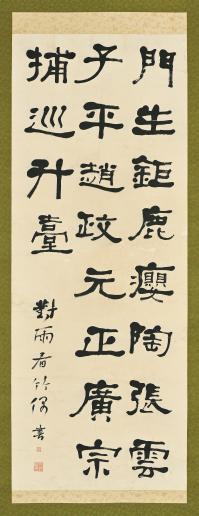 門生鉅鹿癭陶張雲
子平趙政元正廣宗
捕巡升臺
對雨看竹書